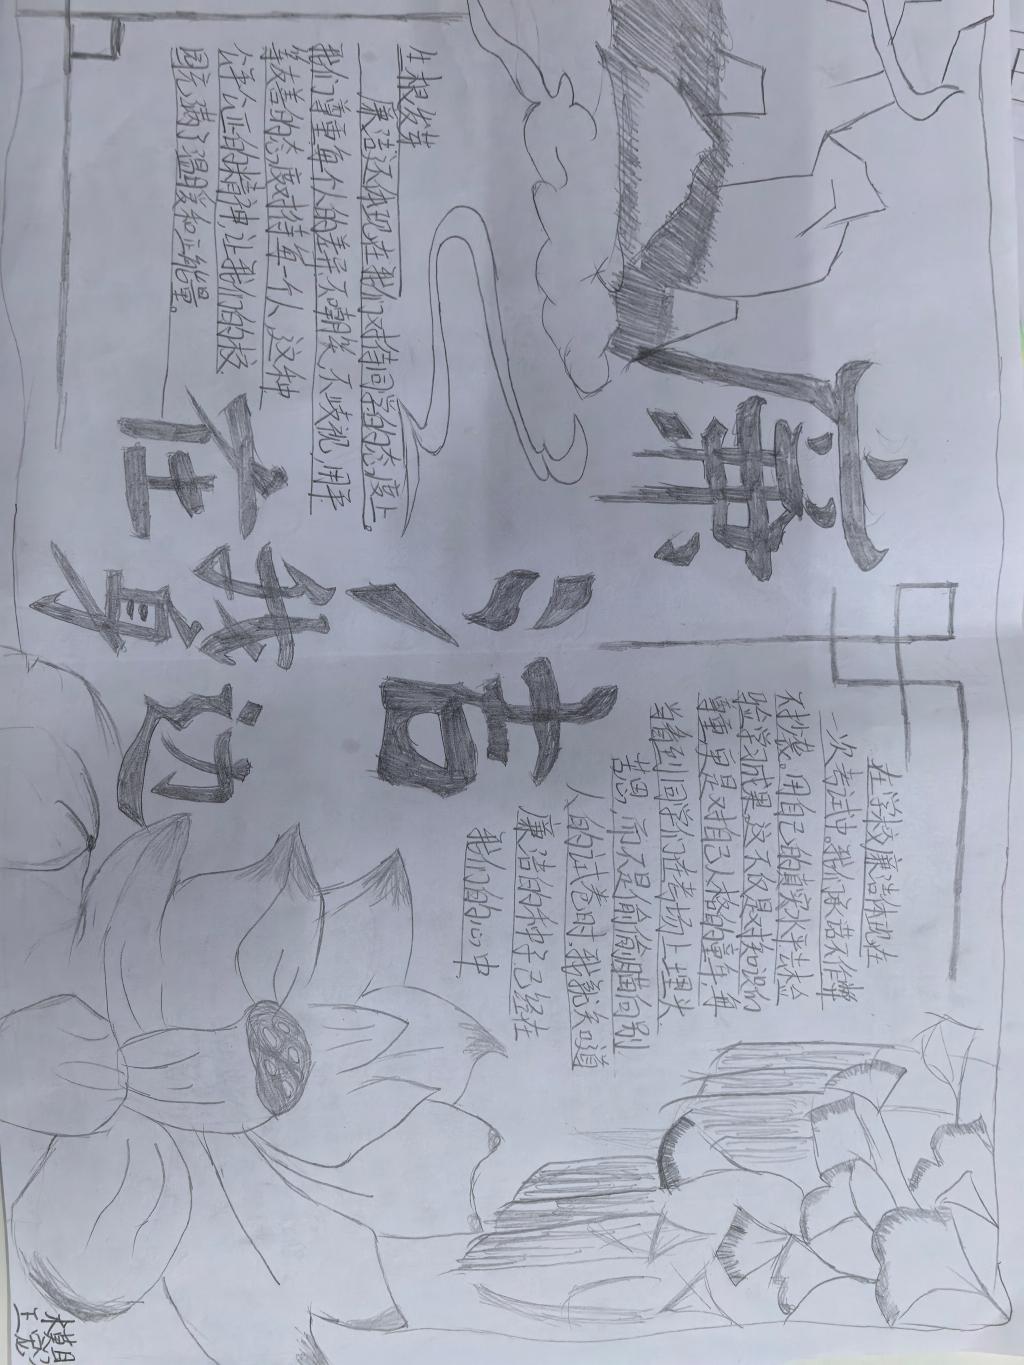 廉洁
在我身边
在学校廉洁体现在
一次考试中,我们承诺不作弊
不抄袭.用自己的真实水平去检
验学习成果,这不仅是对知识的
尊重,更是对自己人格的尊重,每
当看到同学们在考场上埋头
苦思,而不是偷偷瞄向别
人的试卷时,我就知道
廉洁的种子已经在
我们的心中
生根发芽
廉洁还体现在我们对待同学的态度上。
我们尊重每个人的差异不嘲笑 不歧视,用平
等友善的态度对待每一个人,这种
公正的精神,让我们的校
园充满了温暖和正能量。